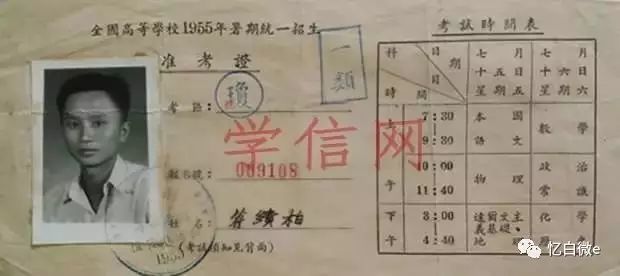 全國高等學校1955年暑期統一招生
准考證
一類
009108
姓名:
(考試須知見背面)
考試時間表
科 日期
時間
七月十五日 星期五
七月十六日 星期六
上午
7:30
9:30
本國語文
數學
10:00
11:40
物理
政治常識
下午
3:00
4:40
達爾文主義基礎、地理
化學
学信网
忆白微e